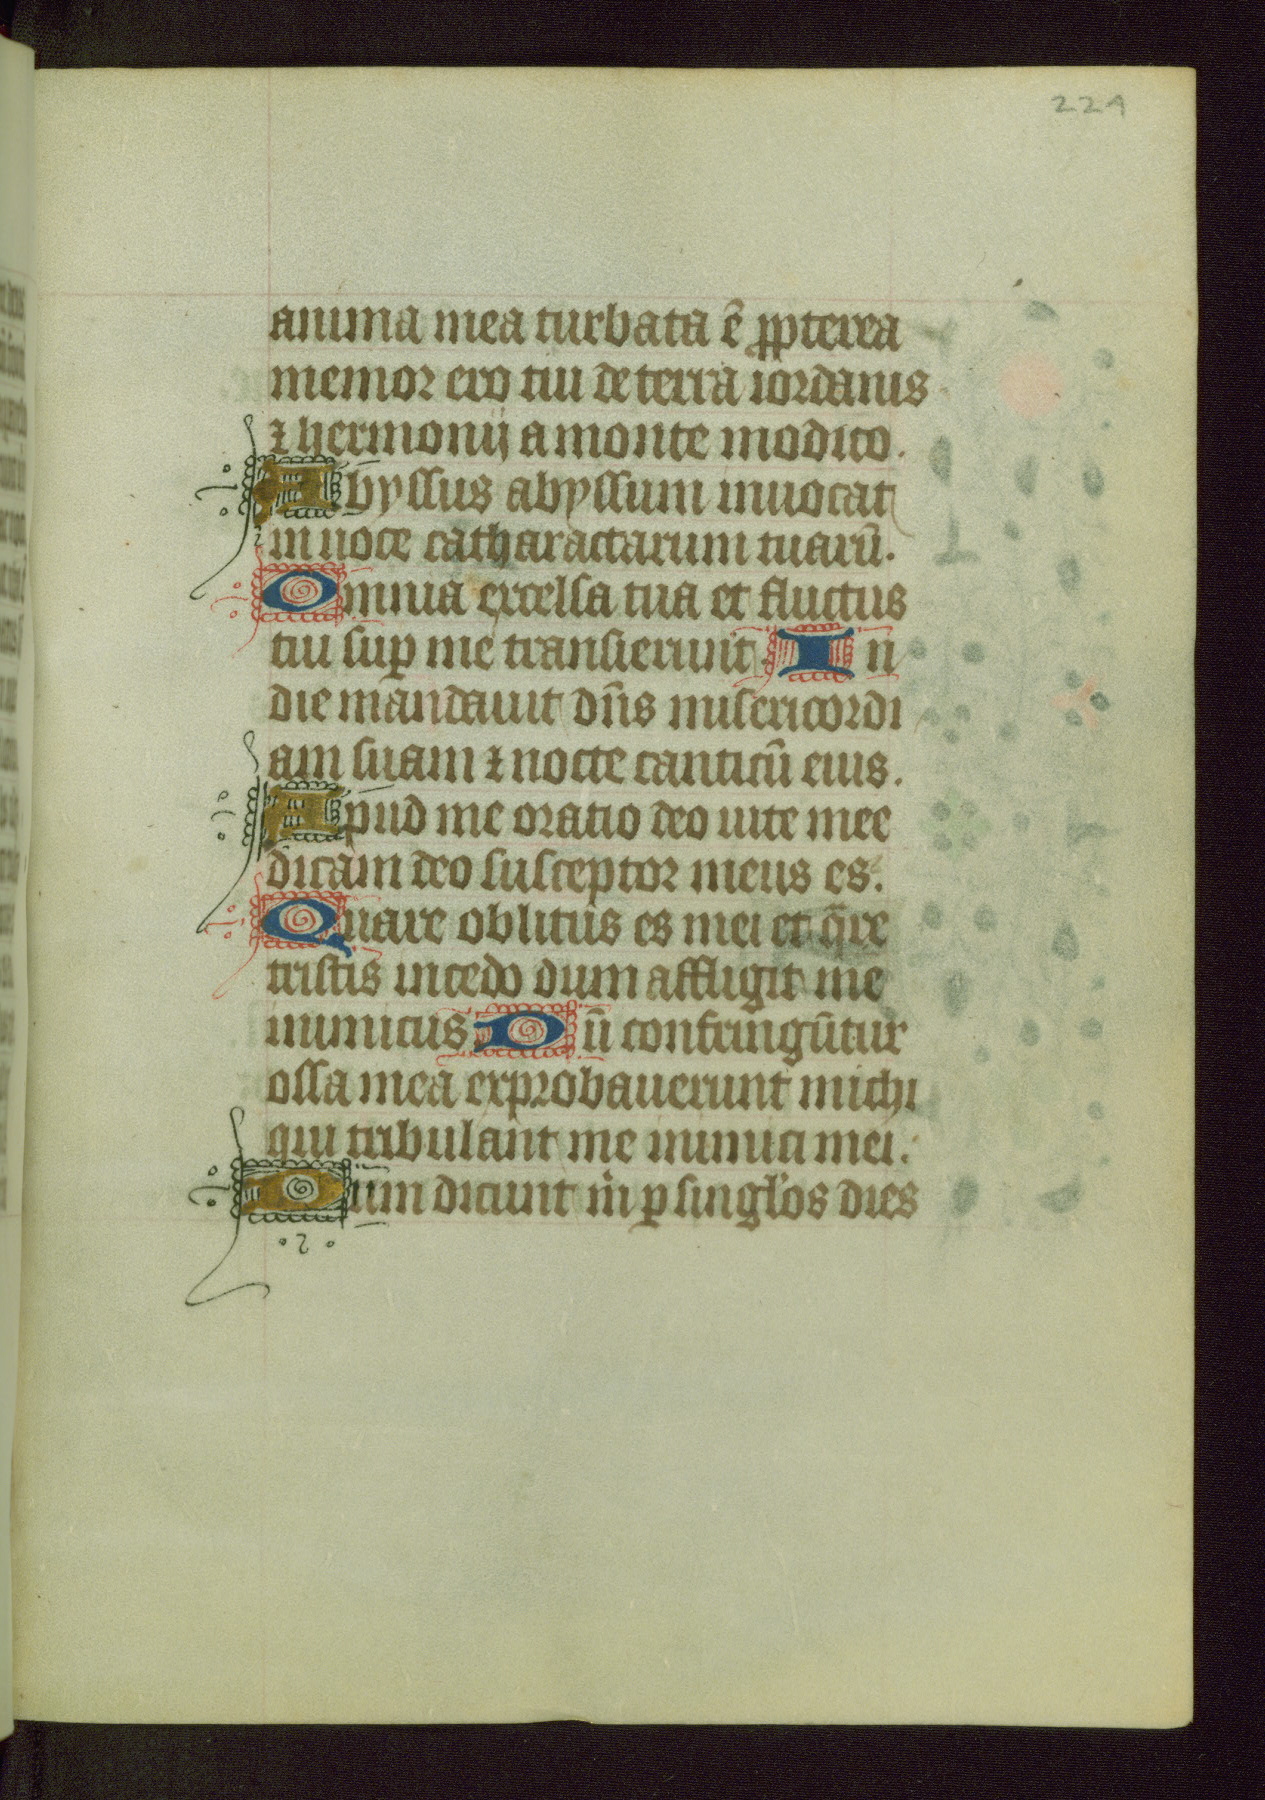 224
anima mea turbata ē ꝓpterea
memor ero tui de terra iordanis
⁊ hermonij a monte modico.
Abyssus abyssum inuocat
in uoce catharactarum tuarū.
Omnia excelsa tua et fluctus
tui suꝑ me transierunt. In
die mandauit dn̄s misericordi
am suam ⁊ nocte canticū eius.
Apud me oratio deo uite mee
dicam deo susceptor meus es.
Quare oblitus es mei et q̄re
tristis incedo dum affligit me
inimicus. Dū confringūtur
ossa mea exprobauerunt michi
qui tribulant me inimici mei.
Dum dicunt m̄ ꝑ singl'os dies